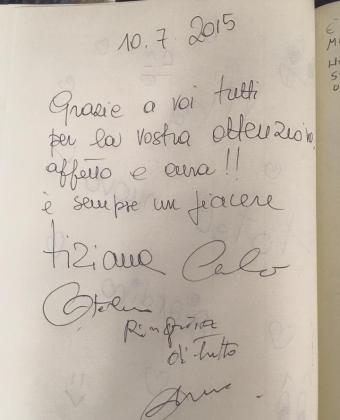 10.7.2015
Grazie a voi tutti
per la vostra attenzione,
affetto e cura!!
è sempre un piacere
tiziana
di tutto